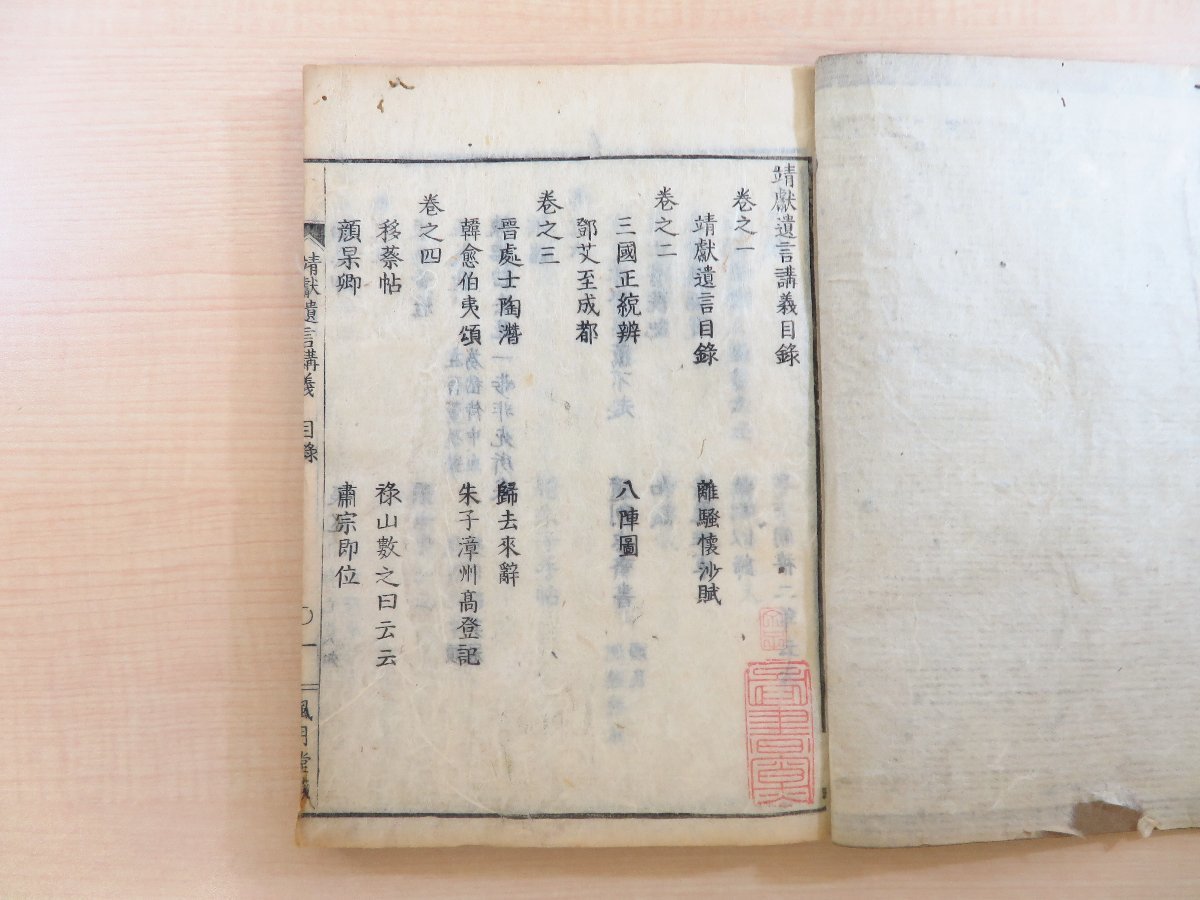 靖獻遺言講義目錄
卷之一
靖獻遺言目錄 離騷懷沙賦
卷之二
三國正統辨 八陣圖
鄧艾至成都
卷之三
晋處士陶潛 歸去來辭
韓愈伯夷頌 朱子漳州髙登記
卷之四
移蔡帖 祿山數之曰云云
顔杲卿 肅宗即位
靖獻遺言講義 目錄 〇一 風月堂藏